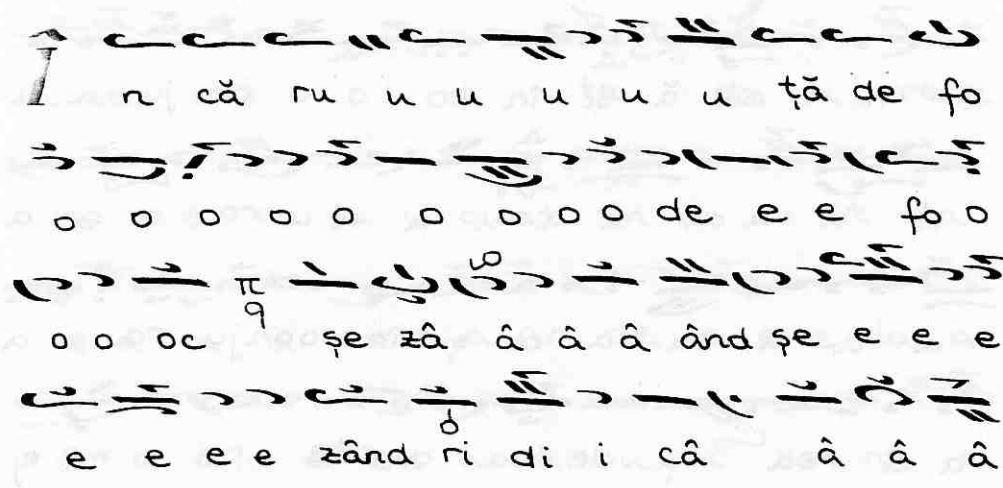 În că ru u u u u u ță de fo
o o o o o o o o o de e e fo o
o o oc șe zâ â â â ând șe e e e
e e e e zând ri di i câ â â â